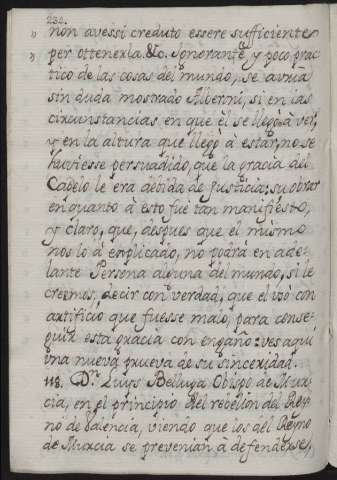 232.
" non avessi creduto essere sufficientes
" per ottenerla. &c. Ignorante, y poco prac-
tico de las cosas del mundo, se avria
sin duda mostrado Alberni, si en las
circunstancias en que èl se llegò à ver,
y en la altura que llegò à estar, no se
huviesse persuadido, que la gracia del
Capelo le era debida de Justicia: su obrar
en quanto à esto fuè tan manifiesto,
y claro, que, despues que el mismo
nos lo à explicado, no podrà en ade-
lante Persona alguna del mundo, si le
creemos, decir con verdad, que el usò con
artificio que fuesse malo, para conse-
guir esta gracia con engaño: ves aqui
una nueva prueva de su sinceridad.
118. Dn. Luys Belluga Obispo de Mur-
cia, en el principio del rebelion del Rey-
no de Valencia, viendo que los del Reyno
de Murcia se prevenian à defenderse,